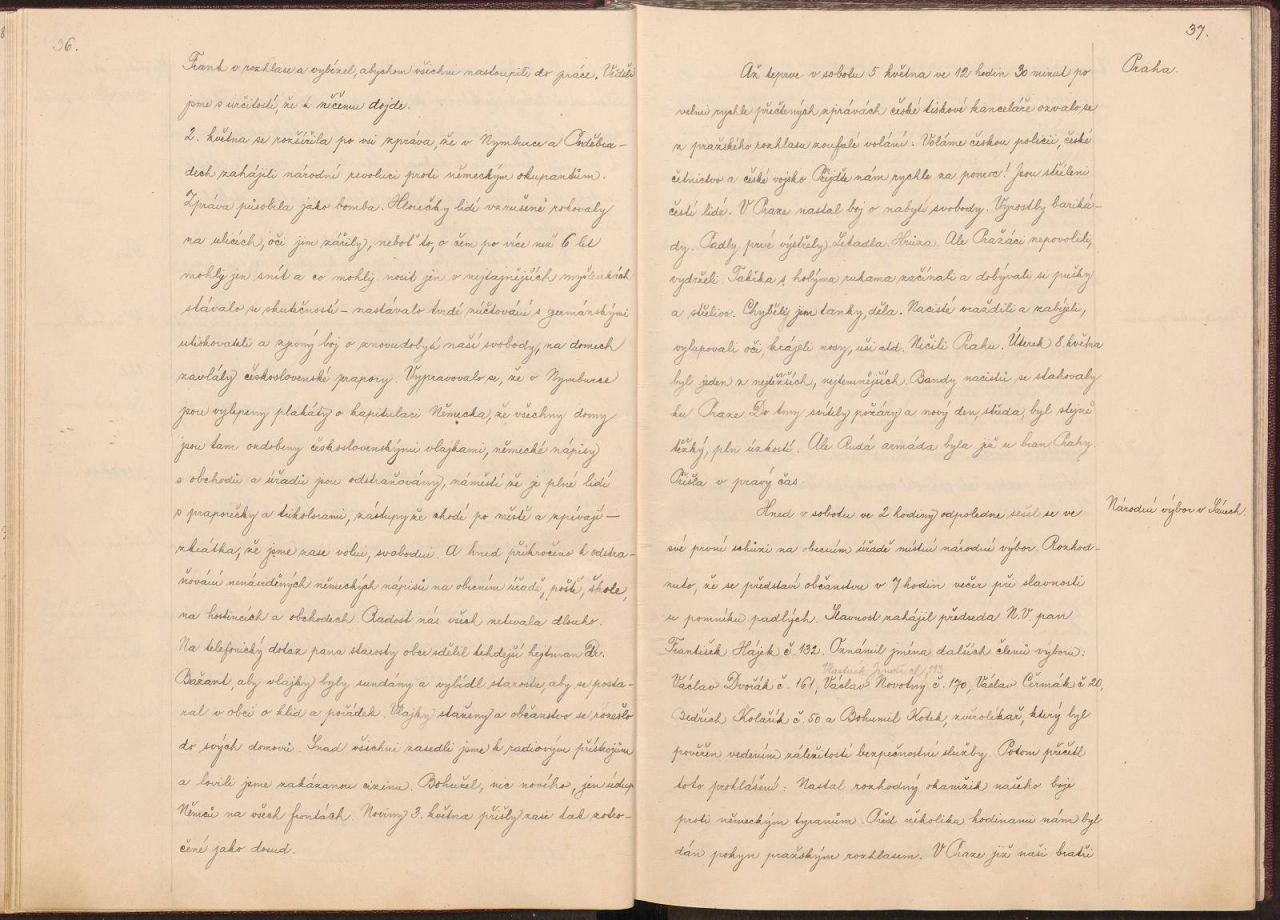 36.
Frank v rozhlase a vybízel, abychom všichni nastoupili do práce. Věděli
jsme s určitostí, že k něčemu dojde.
2. května se rozšířila po vsi zpráva, že v Nymburce a Poděbra-
dech zahájili národní revoluci proti německým okupantům.
Zpráva působila jako bomba. Hloučky lidí vzrušeně rokovaly
na ulicích, oči jim zářily, neboť to, o čem po více než 6 let
mohly jen snít a co mohly nosit jen v nejtajnějších myšlenkách
stávalo se skutečností – nastávalo tvrdé zúčtování s germánskými
utiskovateli a zjevný boj o znovudobytí naší svobody, na domech
zavlály československé prapory. Vypravovalo se, že v Nymburce
jsou vylepeny plakáty o kapitulaci Německa, že všechny domy
jsou tam ozdobeny československými vlajkami, německé nápisy
s obchodů a úřadů jsou odstraňovány, náměstí že je plné lidí
s praporečky a trikolorami, zástupy že chodí po městě a zpívají –
zkrátka, že jsme zase volni, svobodni. A hned přikročeno k odstra-
ňování nenáviděných německých nápisů na obecním úřadě, poště, škole,
na hostincích a obchodech. Radost nás všech netrvala dlouho.
Na telefonický dotaz pana starosty obce sdělil tehdejší hejtman Dr.
Bažant, aby vlajky byly sundány a vybídl starostu, aby se posta-
ral v obci o klid a pořádek. Vlajky staženy a občanstvo se rozešlo
do svých domovů. Snad všichni zasedli jsme k radiovým přístrojům
a lovili jsme zakázanou cizinu. Bohužel, nic nového, jen ústup
Němců na všech frontách. Noviny 3. května přišly zase tak zotro-
čené jako dosud.
37.
Praha.
Až teprve v sobotu 5 května ve 12 hodin 30 minut po
velmi rychle přečtených zprávách české tiskové kanceláře ozvalo se
z pražského rozhlasu zoufalé volání: Voláme českou policii, české
četnictvo a české vojsko. Přijďte nám rychle na pomoc! Jsou stříleni
čeští lidé. V Praze nastal boj o nabytí svobody. Vyrostly bariká-
dy. Padly prvé výstřely. Letadla. Hrůza. Ale Pražáci nepovolili,
vydrželi. Takřka s holýma rukama začínali a dobývali se pušky
a střelivo. Chyběly jim tanky, děla. Nacisté vraždili a zabíjeli,
vylupovali oči, krájeli nosy, uši atd. Ničili Prahu. Úterek 8 května
byl jeden z nejtěžších, nejtemnějších. Bandy nacistů se stahovaly
ku Praze. Do tmy svítily požáry a nový den, středa, byl stejně
těžký, pln úzkostí. Ale Rudá armáda byla již u bran Prahy.
Přišla v pravý čas
Národní výbor v Sánech.
Hned v sobotu ve 2 hodiny odpoledne sešel se ve
své první schůzi na obecním úřadě místní národní výbor. Rozhod-
nuto, že se představí občanstvu v 7 hodin večer při slavnosti
u pomníku padlých. Slavnost zahájil předseda N.V. pan
František Hájek č. 132. Oznámil jména dalších členů výboru:
Václav Dvořák č. 161, Václav Novotný č. 170, Václav Čermák č 20,
Bedřich Kolařík č. 50 a Bohumil Kotek, zvěrolékař, který byl
pověřen vedením záležitostí bezpečnostní služby. Potom přečetl
toto prohlášení: Nastal rozhodný okamžik našeho boje
proti německým tyranům. Před několika hodinami nám byl
dán pokyn pražským rozhlasem. V Praze již naši bratři